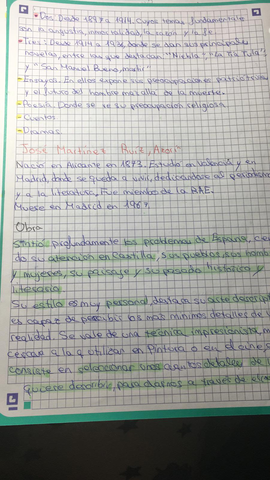 • Dos: Desde 1897 a 1914. Cuyos temas fundamentale
son la angustia, inmortalidad, la razón y la fe.
• Tres: Desde 1914 a 1936, donde se van sus principales
novelas, entre las que destacan "Niebla", "La tía Tula"
y "San Manuel Bueno, martir"
- Ensayos. En ellos expone sus preocupaciones
y el futuro del hombre mas alla de la muerte.
- Poesía. Donde se ve su preocupación religiosa
- Cuentos
- Dramas
José Martínez Ruiz, Azorín
Nació en Alicante en 1873. Estudio en Valencia y en
Madrid, donde se queda a vivir, dedicandose al periodismo
y a la literatura. Fue miembro de la RAE.
Muere en Madrid en 1967.
Obra
Sintió profundamente los problemas de España, cen
do su atención en Castilla, sus pueblos, sus homb
y mujeres, su paisaje y su pasado histórico y
literario
Su estilo es muy personal, destaca su arte descrip
es capaz de percibir los mas minimos detalles de l
realidad. Se vale de una técnica impresionista, m
cercana a la q utilizan en Pintura o en el cine,
consiste en seleccionar unos cuantos detalles de l
quiere describir, para darnos a través de